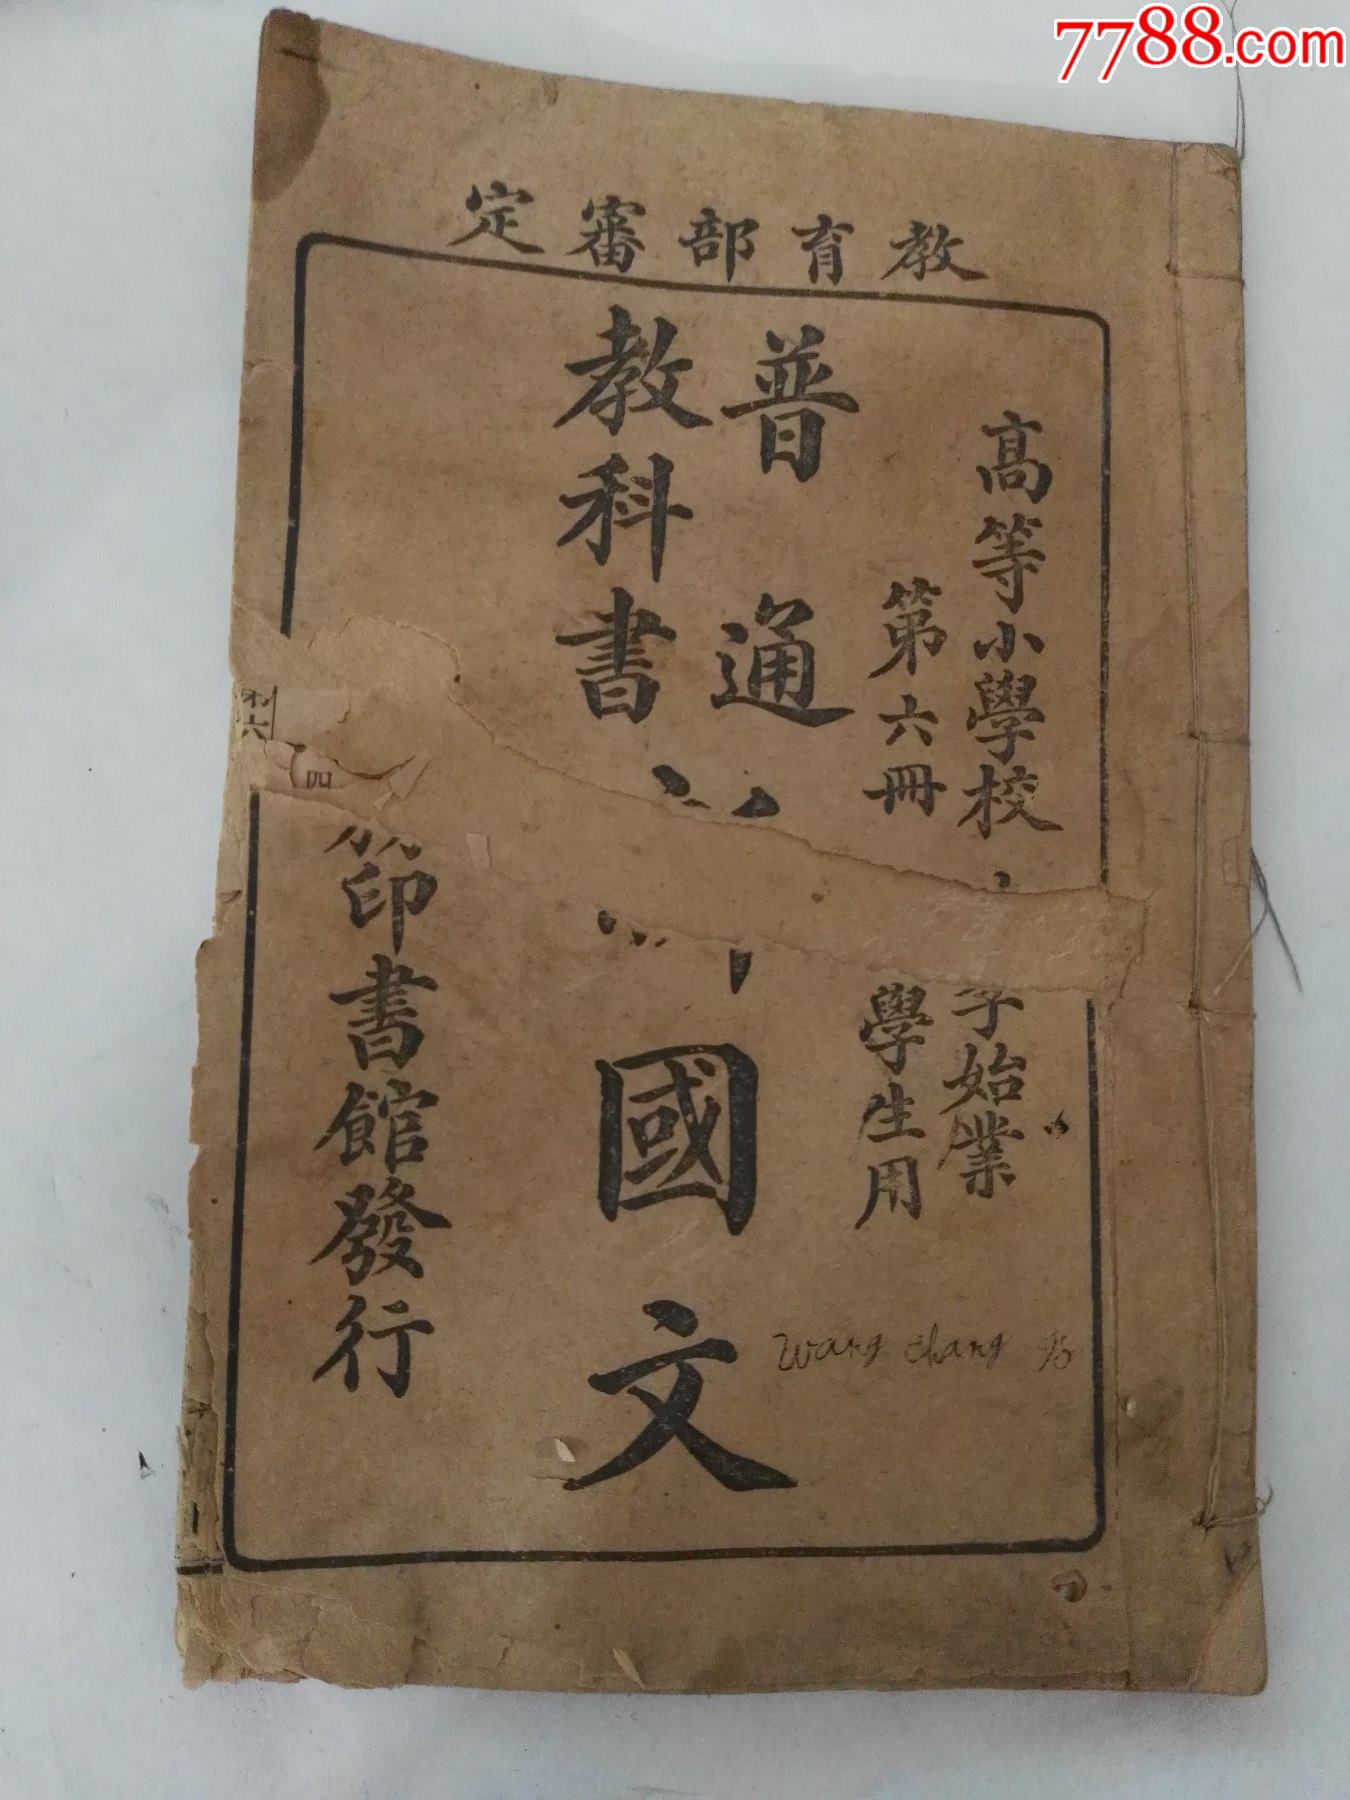 7788.com
教育部審定
高等小學校
季始業
第六冊
學生用
普通
教科書
國文
印書館發行
第六
四
Wang chang